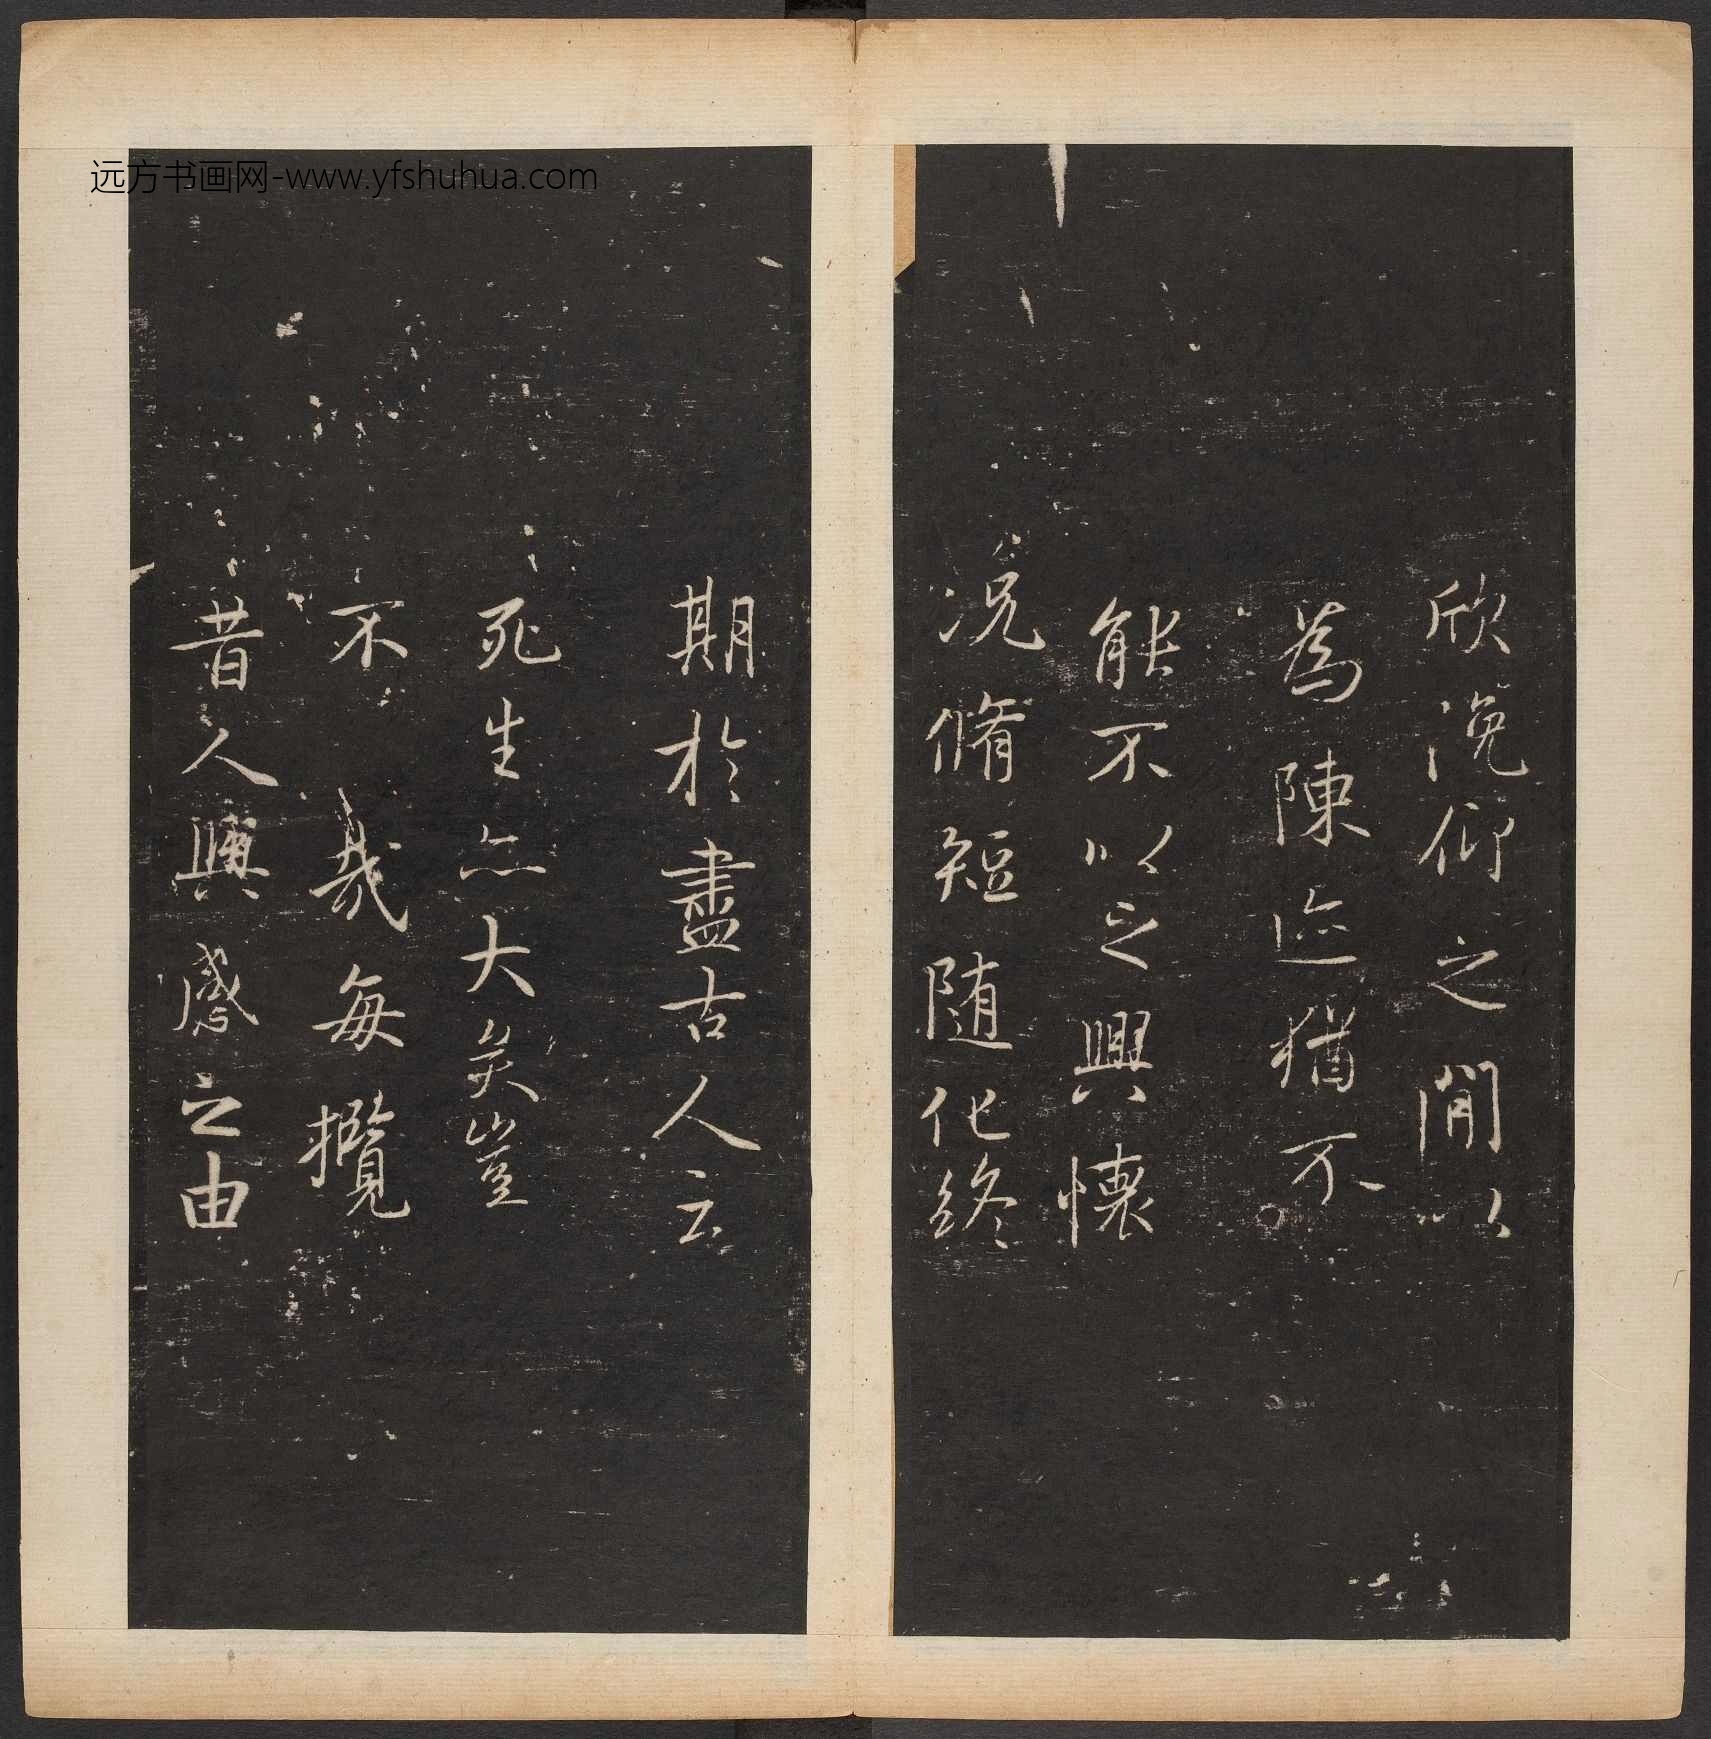 欣俛仰之閒以
為陳迹猶不
能不以之興懷
况脩短随化終
期於盡古人云
死生亦大矣豈
不哉每攬
昔人興感之由
远方书画网-www.yfshuhua.com